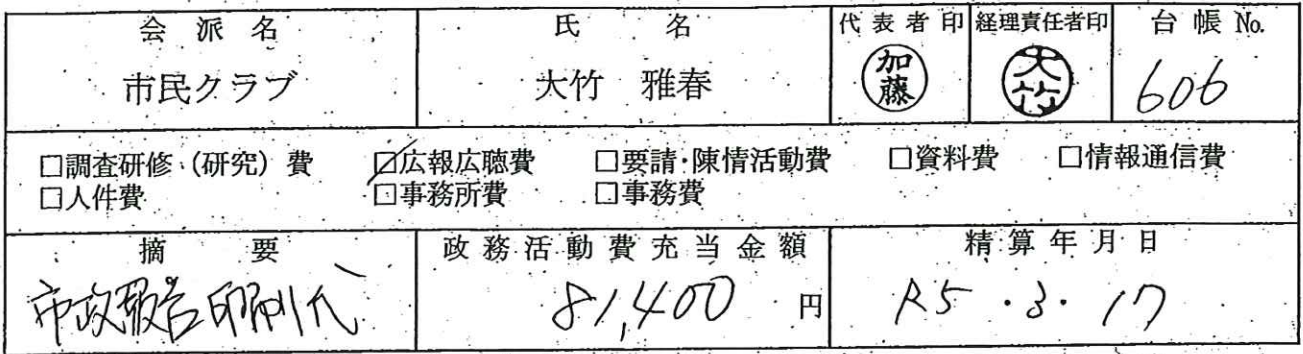 会派名 氏名 代表者印 経理責任者印 台帳No.
市民クラブ 大竹 雅春 加藤 大竹 606
□調査研修(研究)費 ☑広報広聴費 □要請・陳情活動費 □資料費 □情報通信費
□人件費 □事務所費 □事務費
摘要 政務活動費充当金額 精算年月日
市政報告印刷代 81,400円 R5・3・17